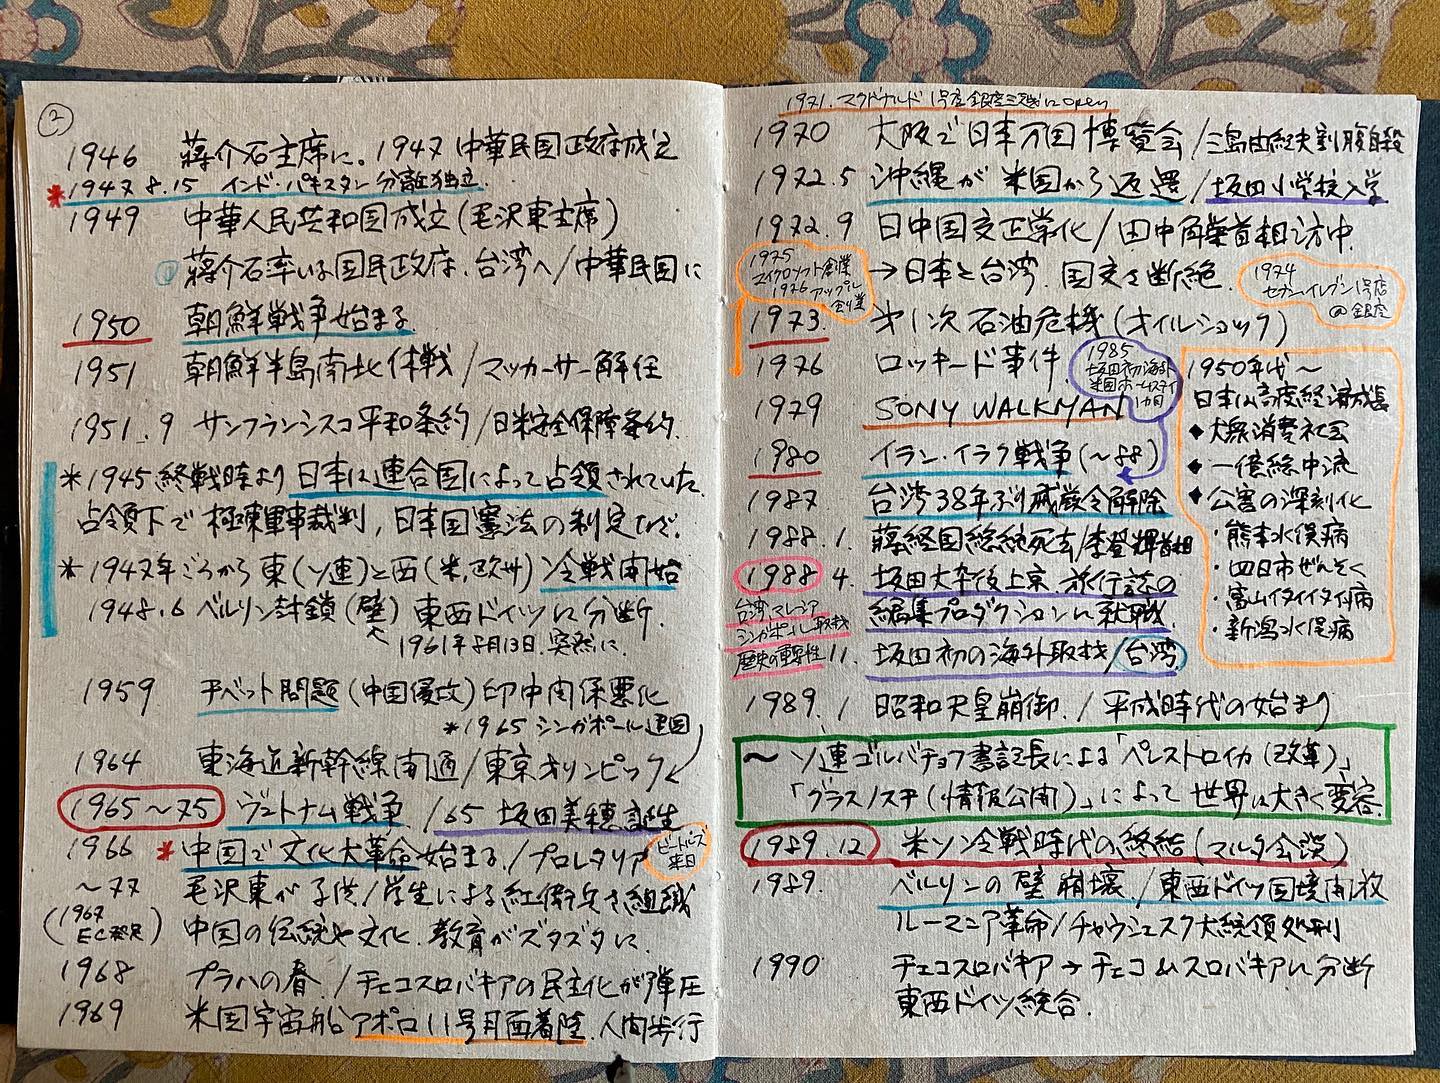 ②
1946 蔣介石主席に。1947 中華民国政府成立
*1947 8.15 インド・パキスタン分離独立
1949 中華人民共和国成立(毛沢東主席)
① 蔣介石率いる国民政府、台湾へ/中華民国に
1950 朝鮮戦争始まる
1951 朝鮮半島南北休戦/マッカーサー解任
1951.9 サンフランシスコ平和条約/日米安全保障条約.
*1945 終戦時より日本は連合国によって占領されていた.
占領下で極東軍事裁判, 日本国憲法の制定など.
*1947年ごろから東(ソ連)と西(米,欧州) 冷戦開始
1948.6 ベルリン封鎖(壁) 東西ドイツに分断.
1961年8月13日.突然に.
1959 チベット問題(中国侵攻)印中関係悪化
*1965 シンガポール建国
1964 東海道新幹線開通/東京オリンピック
1965〜75 ヴェトナム戦争 /65 坂田美穂誕生
1966 *中国で文化大革命始まる./プロレタリア
ビートルズ
来日
〜77 毛沢東が子供/学生による紅衛兵を組織
(1967 中国の伝統や文化.教育がズタズタに.
EC発足)
1968 プラハの春./チェコスロバキアの民主化が弾圧
1969 米国宇宙船アポロ11号月面着陸.人間歩行
1971. マクドナルド 1号店 銀座三越に open
1970 大阪で日本万国博覧会/三島由紀夫割腹自殺
1972.5 沖縄が米国から返還/坂田小学校入学
1972.9 日中国交正常化/田中角栄首相訪中.
1975
マイクロソフト創業
1976 アップル
創業
→日本と台湾.国交を断絶.
1974
セブンイレブン1号店
@銀座
1973. 第1次石油危機(オイルショック)
1976 ロッキード事件
1985
坂田初海外
米国ホームステイ
1カ月
1979 SONY WALKMAN
1980 イラン・イラク戦争(〜88)
1987 台湾38年ぶり戒厳令解除
1988.1. 蔣経国総統死去/李登輝首相
1988 4. 坂田大卒後上京.旅行誌の
編集プロダクションに就職.
台湾マレーシア
シンガポール取材
歴史の重要性
11. 坂田初の海外取材/台湾
1950年代〜
日本は高度経済成長
◆大衆消費社会
◆一億総中流
◆公害の深刻化
・熊本水俣病
・四日市ぜんそく
・富山イタイイタイ病
・新潟水俣病
1989.1 昭和天皇崩御./平成時代の始まり
〜ソ連ゴルバチョフ書記長による「ペレストロイカ(改革)」
「グラスノスチ(情報公開)」によって世界は大きく変容.
1989.12 米ソン冷戦時代の終結(マルタ会談)
1989. ベルリンの壁崩壊./東西ドイツ国境開放
ルーマニア革命/チャウシェスク大統領処刑
1990 チェコスロバキア→チェコ&スロバキアに分断
東西ドイツ統合.